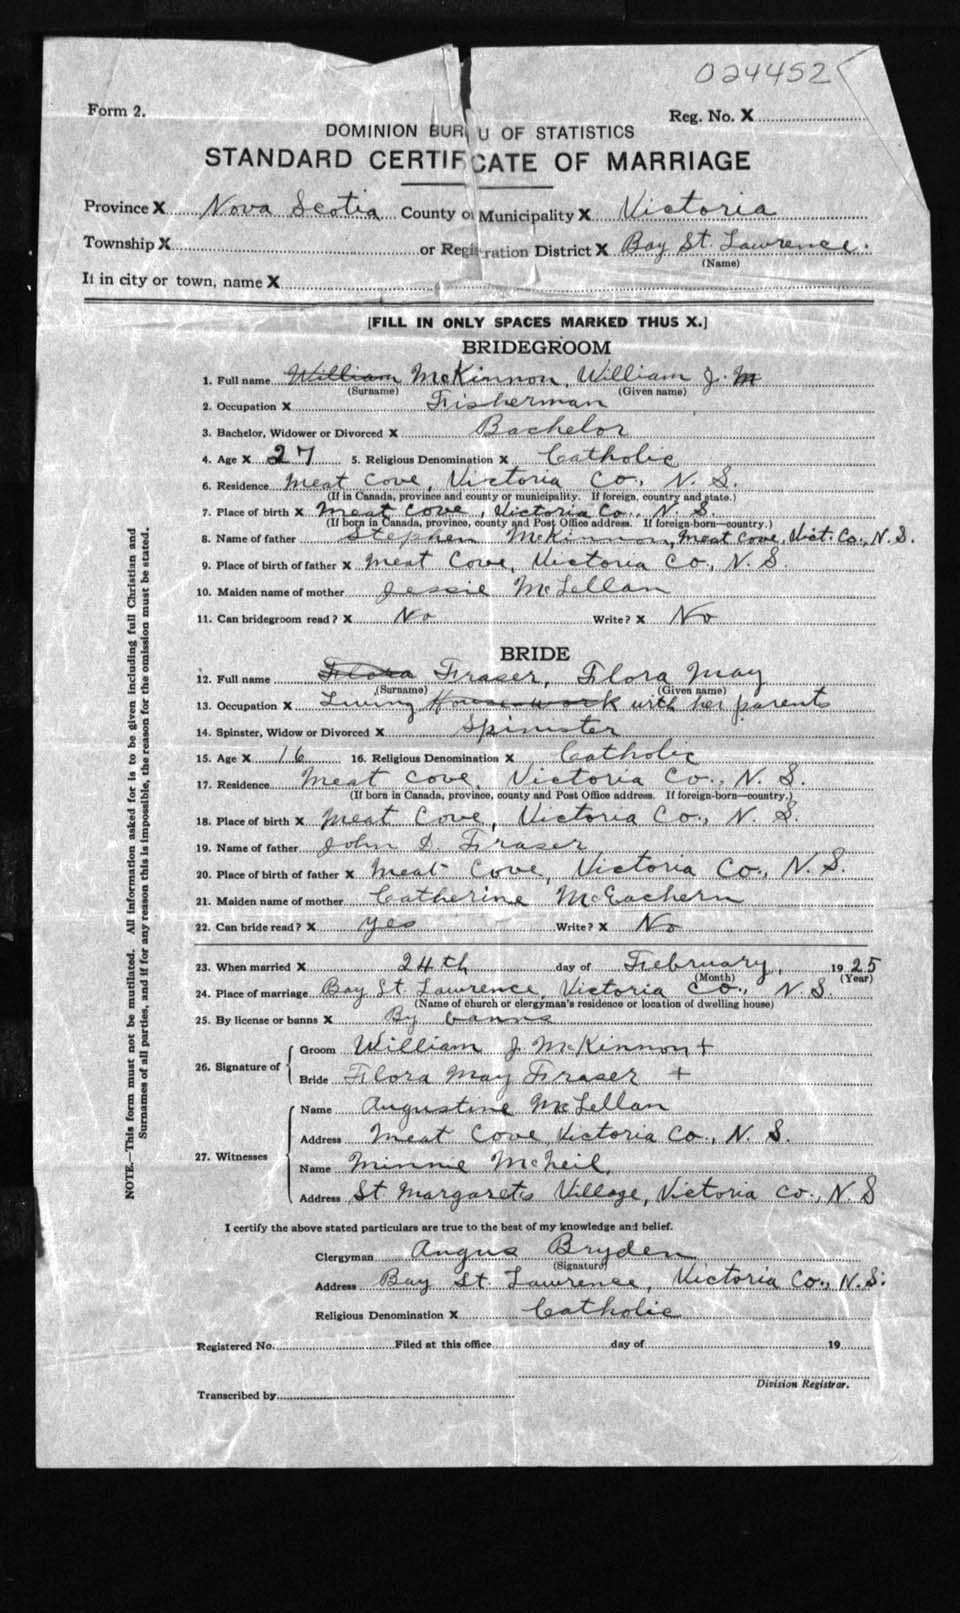 024452
Form 2.
Reg. No. X
DOMINION BUR U OF STATISTICS
STANDARD CERTIFCATE OF MARRIAGE
Province X Nova Scotia County o Municipality X Victoria
Township X or Registration District X Bay St. Lawrence.
(Name)
If in city or town, name X
[FILL IN ONLY SPACES MARKED THUS X.]
BRIDEGROOM
1. Full name William McKinnon, William J. M
(Surname) (Given name)
2. Occupation X Fisherman
3. Bachelor, Widower or Divorced X Bachelor
4. Age X 27 5. Religious Denomination X Catholic
6. Residence Meat Cove, Victoria Co., N. S.
(If in Canada, province and county or municipality. If foreign, country and state.)
7. Place of birth X Meat Cove, Victoria Co., N. S.
(If born in Canada, province, county and Post Office address. If foreign-born—country.)
8. Name of father Stephen McKinnon, Meat Cove, Vict. Co., N. S.
9. Place of birth of father X Meat Cove, Victoria Co., N. S.
10. Maiden name of mother Jessie McLellan
11. Can bridegroom read? X No Write? X No
BRIDE
12. Full name Flora Fraser, Flora May
(Surname) (Given name)
13. Occupation X Living Housework with her parents
14. Spinster, Widow or Divorced X Spinster
15. Age X 16 16. Religious Denomination X Catholic
17. Residence Meat Cove, Victoria Co., N. S.
(If born in Canada, province, county and Post Office address. If foreign-born—country.)
18. Place of birth X Meat Cove, Victoria Co., N. S.
19. Name of father John D. Fraser
20. Place of birth of father X Meat Cove, Victoria Co., N. S.
21. Maiden name of mother Catherine McEachern
22. Can bride read? X Yes Write? X No
23. When married X 24th day of February, 1925
(Month) (Year)
24. Place of marriage Bay St. Lawrence, Victoria Co., N. S.
(Name of church or clergyman's residence or location of dwelling house)
25. By license or banns X By banns
26. Signature of Groom William J. McKinnon +
Bride Flora May Fraser +
27. Witnesses Name Augustine McLellan
Address Meat Cove, Victoria Co., N. S.
Name Minnie McNeil,
Address St Margarets Village, Victoria Co., N. S
I certify the above stated particulars are true to the best of my knowledge and belief.
Clergyman Angus Bryden
(Signature)
Address Bay St. Lawrence, Victoria Co., N. S.
Religious Denomination X Catholic
Registered No. Filed at this office day of 19
Division Registrar.
Transcribed by
NOTE.—This form must not be mutilated. All information asked for is to be given including full Christian and
Surnames of all parties, and if for any reason this is impossible, the reason for the omission must be stated.